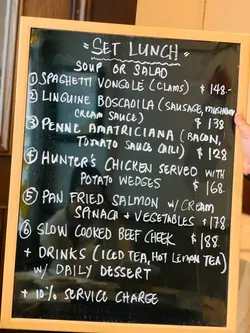 "SET LUNCH"
SOUP OR SALAD
① SPAGHETTI VONGOLE (CLAMS) $148.-
② LINGUINE BOSCAOILA (SAUSAGE, MUSHROOM
CREAM SAUCE) $138
③ PENNE AMATRICIANA (BACON,
TOMATO SAUCE CHILI) $128
④ HUNTER'S CHICKEN SERVED WITH
POTATO WEDGES $168.
⑤ PAN FRIED SALMON W/ CREAM
SPINACH + VEGETABLES $178
⑥ SLOW COOKED BEEF CHEEK $188.
+ DRINKS (ICED TEA, HOT LEMON TEA)
W/ DAILY DESSERT
+ 10% SERVICE CHARGE